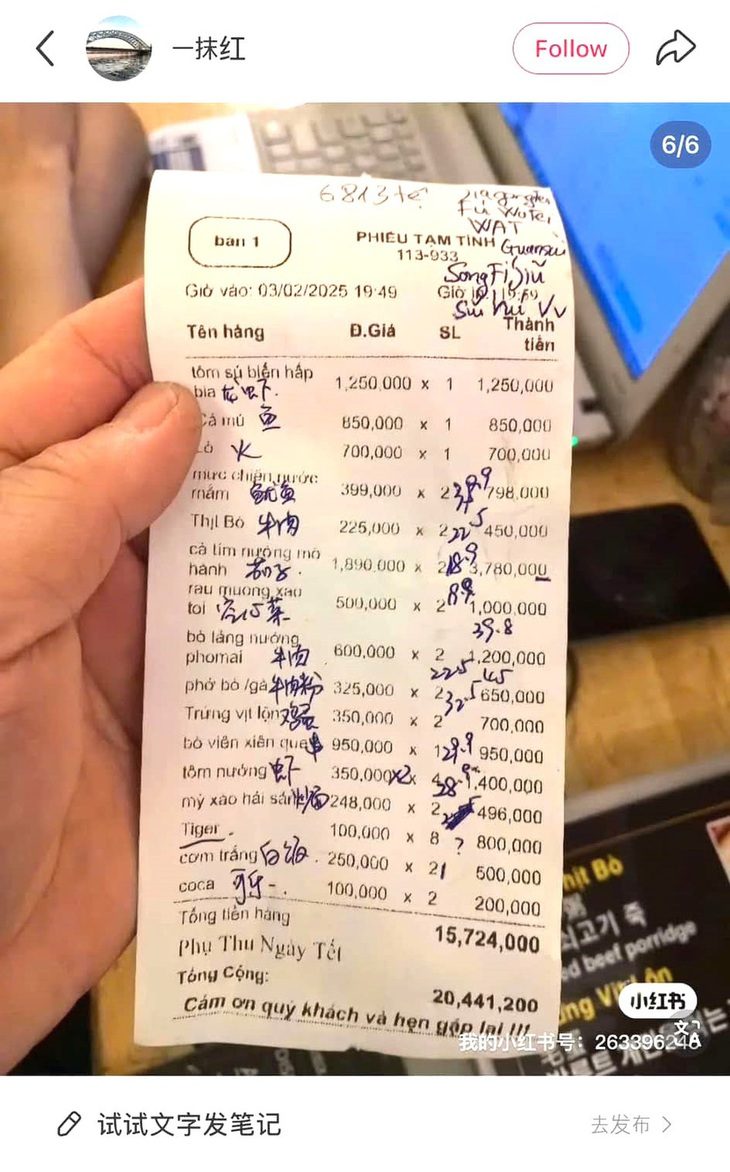 一抹红
Follow
6/6
6813
WAT
bàn 1
PHIẾU TẠM TÍNH
113-933
Giờ vào: 03/02/2025 19:49
Tên hàng Đ.Giá SL Thành
tiền
tôm sú biển hấp
bia 龙虾. 1,250,000 x 1 1,250,000
Cá mú 鱼 850,000 x 1 850,000
火 700,000 x 1 700,000
mực chiên nước
mắm 鱿鱼 399,000 x 2 798,000
Thịt Bò 牛肉 225,000 x 2 450,000
cà tím nướng mỡ
hành 茄子. 1,890,000 x 2 3,780,000
rau muống xào
tỏi 500,000 x 2 1,000,000
39.8
bò lảng nướng
phomai 牛肉 600,000 x 2 1,200,000
phở bò /gà 牛肉粉 325,000 x 2 650,000
Trứng vịt lộn 鸡蛋 350,000 x 2 700,000
bò viên xiên que 串 950,000 x 1 950,000
tôm nướng 虾 350,000 x2 x 4 1,400,000
mỳ xào hải sản 炒面 248,000 x 2 496,000
Tiger 100,000 x 8 ? 800,000
cơm trắng 白饭. 250,000 x 2 500,000
coca 100,000 x 2 200,000
Tổng tiền hàng
15,724,000
Phụ Thu Ngày Tết
Tổng Cộng:
20,441,200
Cám ơn quý khách và hẹn gặp lại !!!
hịt Bò
쇠고기 죽
ed beef porridge
小红书
我的小红书号：263396246
试试文字发笔记
去发布